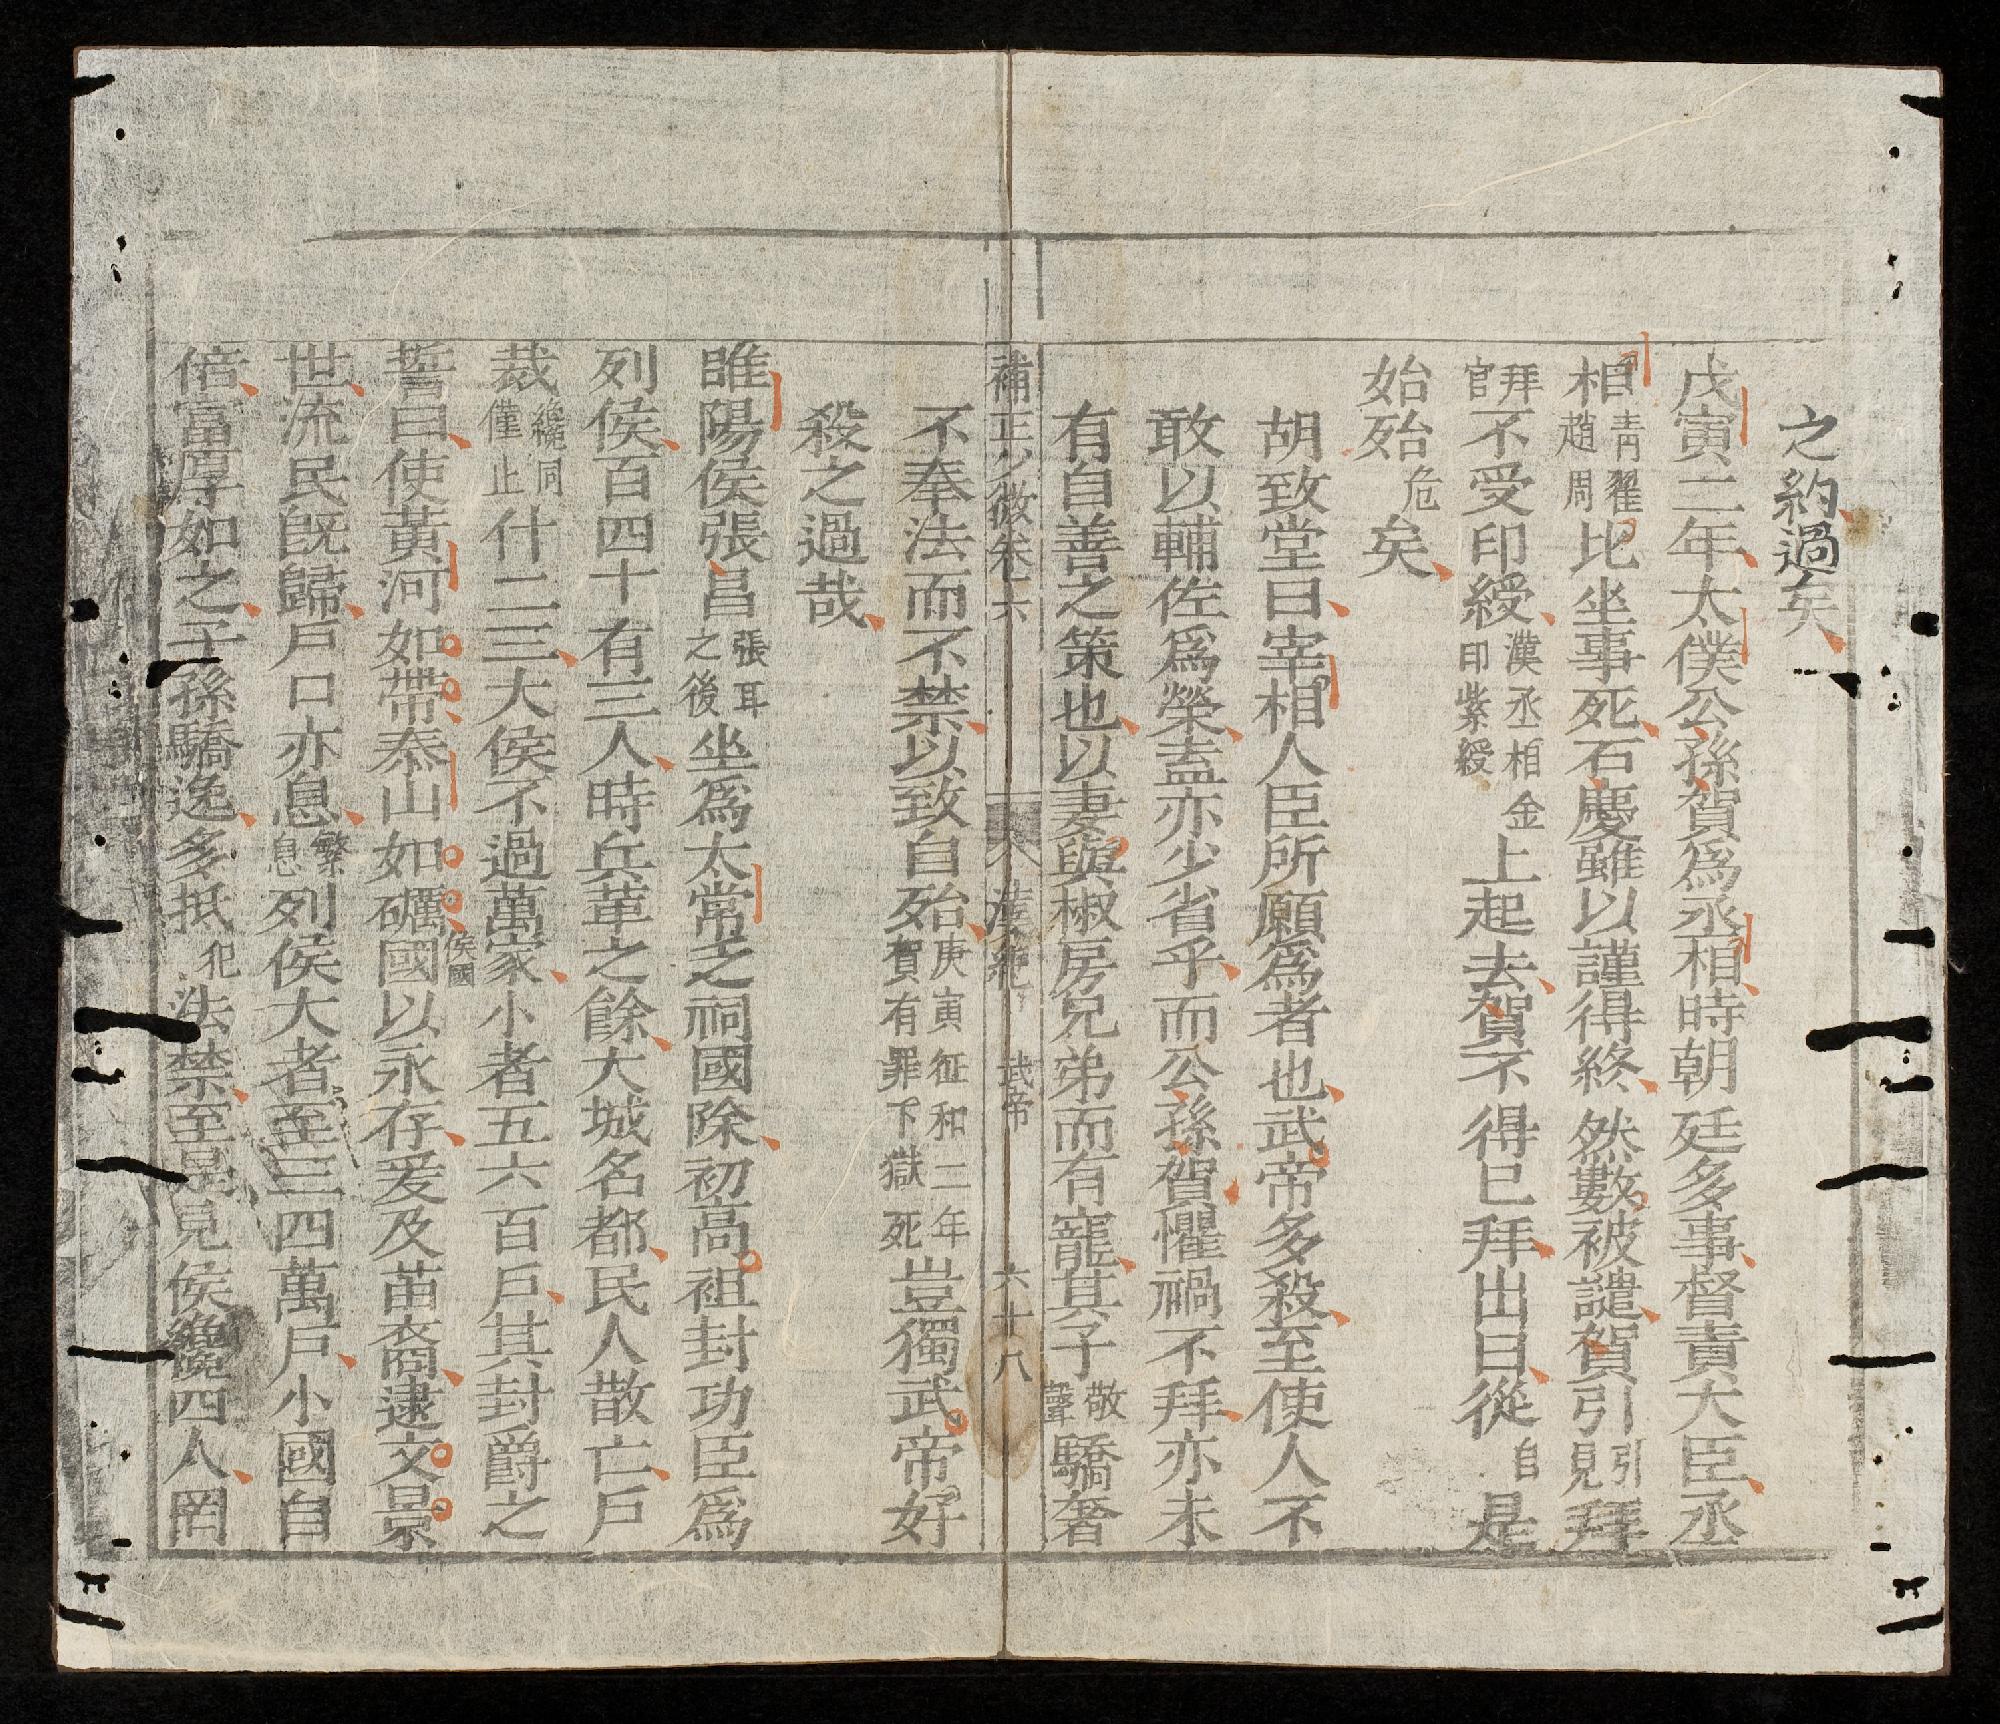 之約過矣
戊寅二年太僕公孫賀爲丞相時朝廷多事督責大臣丞
相青翟趙周比坐事死石慶雖以謹得終然數被譴賀引引見拜
拜官不受印綬漢丞相金印紫綬上起去賀不得已拜出曰從自是
始殆危矣
胡致堂曰宰相人臣所願爲者也武帝多殺至使人不
敢以輔佐爲榮盍亦少省乎而公孫賀懼禍不拜亦未
有自善之策也以妻與椒房兄弟而有寵其子敬聲驕奢
補正少微朱六 漢紀 武帝 六十八
不奉法而不禁以致自殆庚寅征和二年賀有罪下獄死豈獨武帝好
殺之過哉
睢陽侯張昌張耳之後坐爲太常乏祠國除初高祖封功臣爲
列侯百四十有三人時兵革之餘大城名都民人散亡戶
裁纔同僅止什二三大侯不過萬家小者五六百戶其封爵之
誓曰使黃河如帶泰山如礪國侯國以永存爰及苗裔逮文景
世流民旣歸戶口亦息繁息列侯大者至三四萬戶小國自
倍富厚如之子孫驕逸多抵犯法禁至是見侯纔四人罔